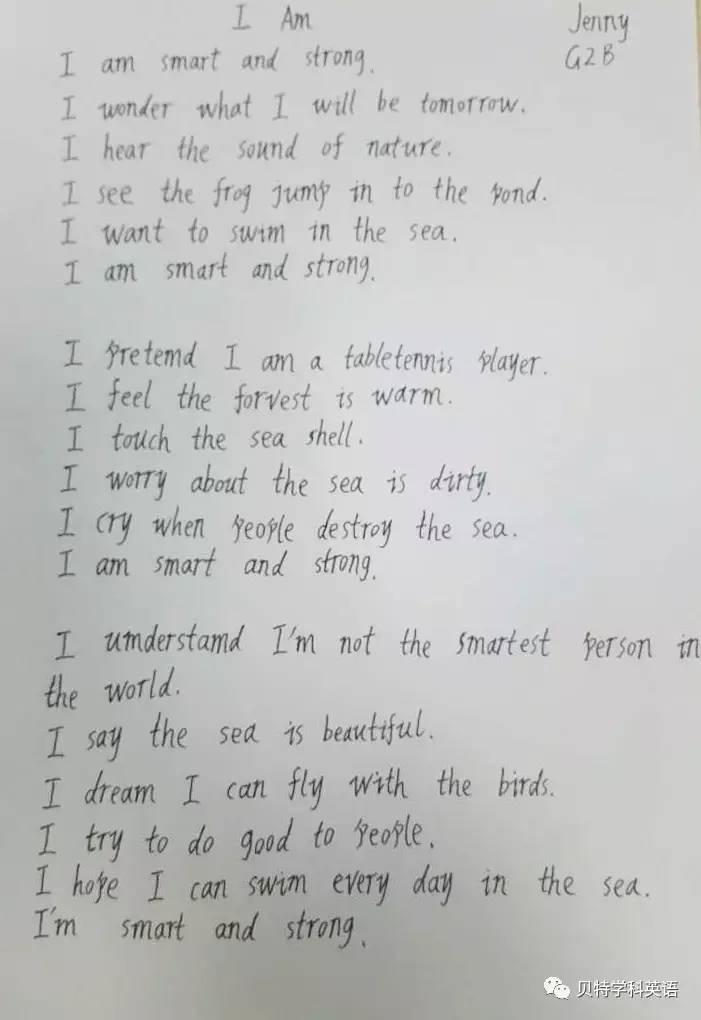 I Am
Jenny
G2B
I am smart and strong.
I wonder what I will be tomorrow.
I hear the sound of nature.
I see the frog jump in to the pond.
I want to swim in the sea.
I am smart and strong.
I pretemd I am a tabletennis player.
I feel the forvest is warm.
I touch the sea shell.
I worry about the sea is dirty.
I cry when people destroy the sea.
I am smart and strong.
I umderstamd I'm not the smartest person in
the world.
I say the sea is beautiful.
I dream I can fly with the birds.
I try to do good to people.
I hope I can swim every day in the sea.
I'm smart and strong.
贝特学科英语